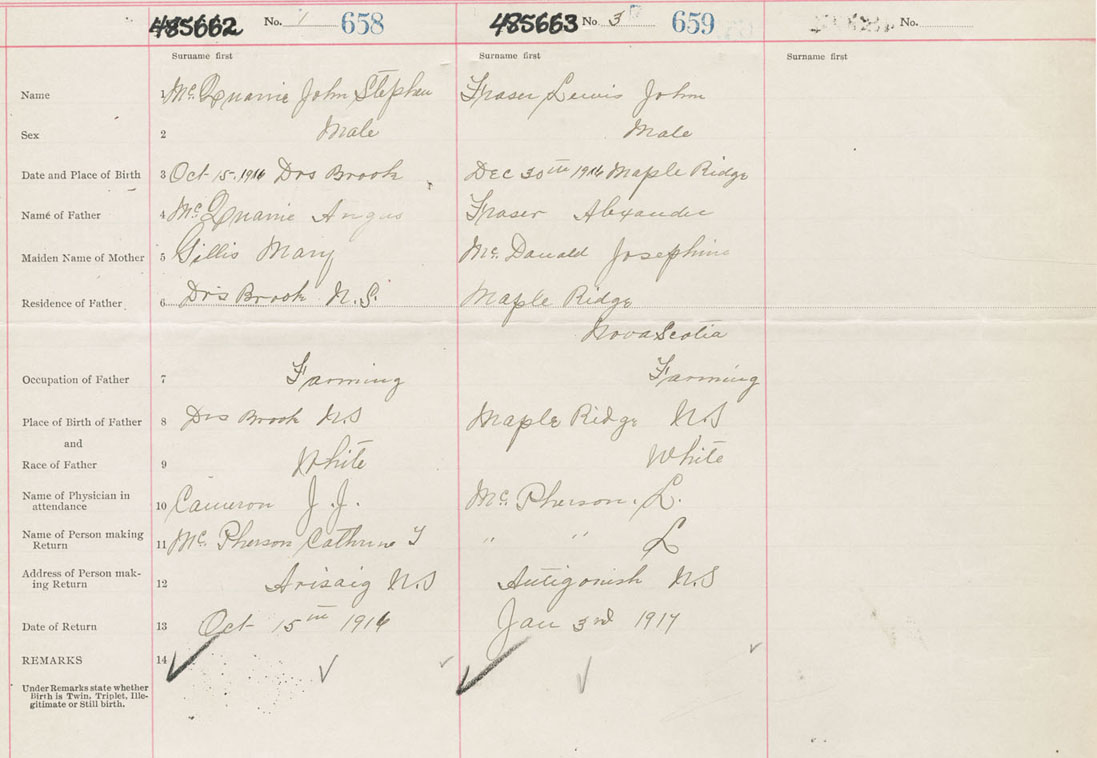 485662 No. 1 658 485663 No 3 659 No.
Surname first Surname first Surname first
Name 1 McQuarrie John Stephen Fraser Lewis John
Sex 2 Male Male
Date and Place of Birth 3 Oct 15. 1916 Drs Brook Dec 30th 1916 Maple Ridge
Name of Father 4 McQuarrie Angus Fraser Alexander
Maiden Name of Mother 5 Gillis Mary Mc Donald Josephine
Residence of Father 6 Drs Brook N.S. Maple Ridge
Nova Scotia
Occupation of Father 7 Farming Farming
Place of Birth of Father 8 Drs Brook N.S Maple Ridge N.S
and
Race of Father 9 White White
Name of Physician in
attendance 10 Cameron J. J. Mc Pherson. L.
Name of Person making
Return 11 Mc Pherson Cathrine J " " L
Address of Person mak-
ing Return 12 Arisaig N.S Antigonish N.S
Date of Return 13 Oct 15th 1916 Jan 3rd 1917
REMARKS 14
Under Remarks state whether
Birth is Twin, Triplet, Ille-
gitimate or Still birth.